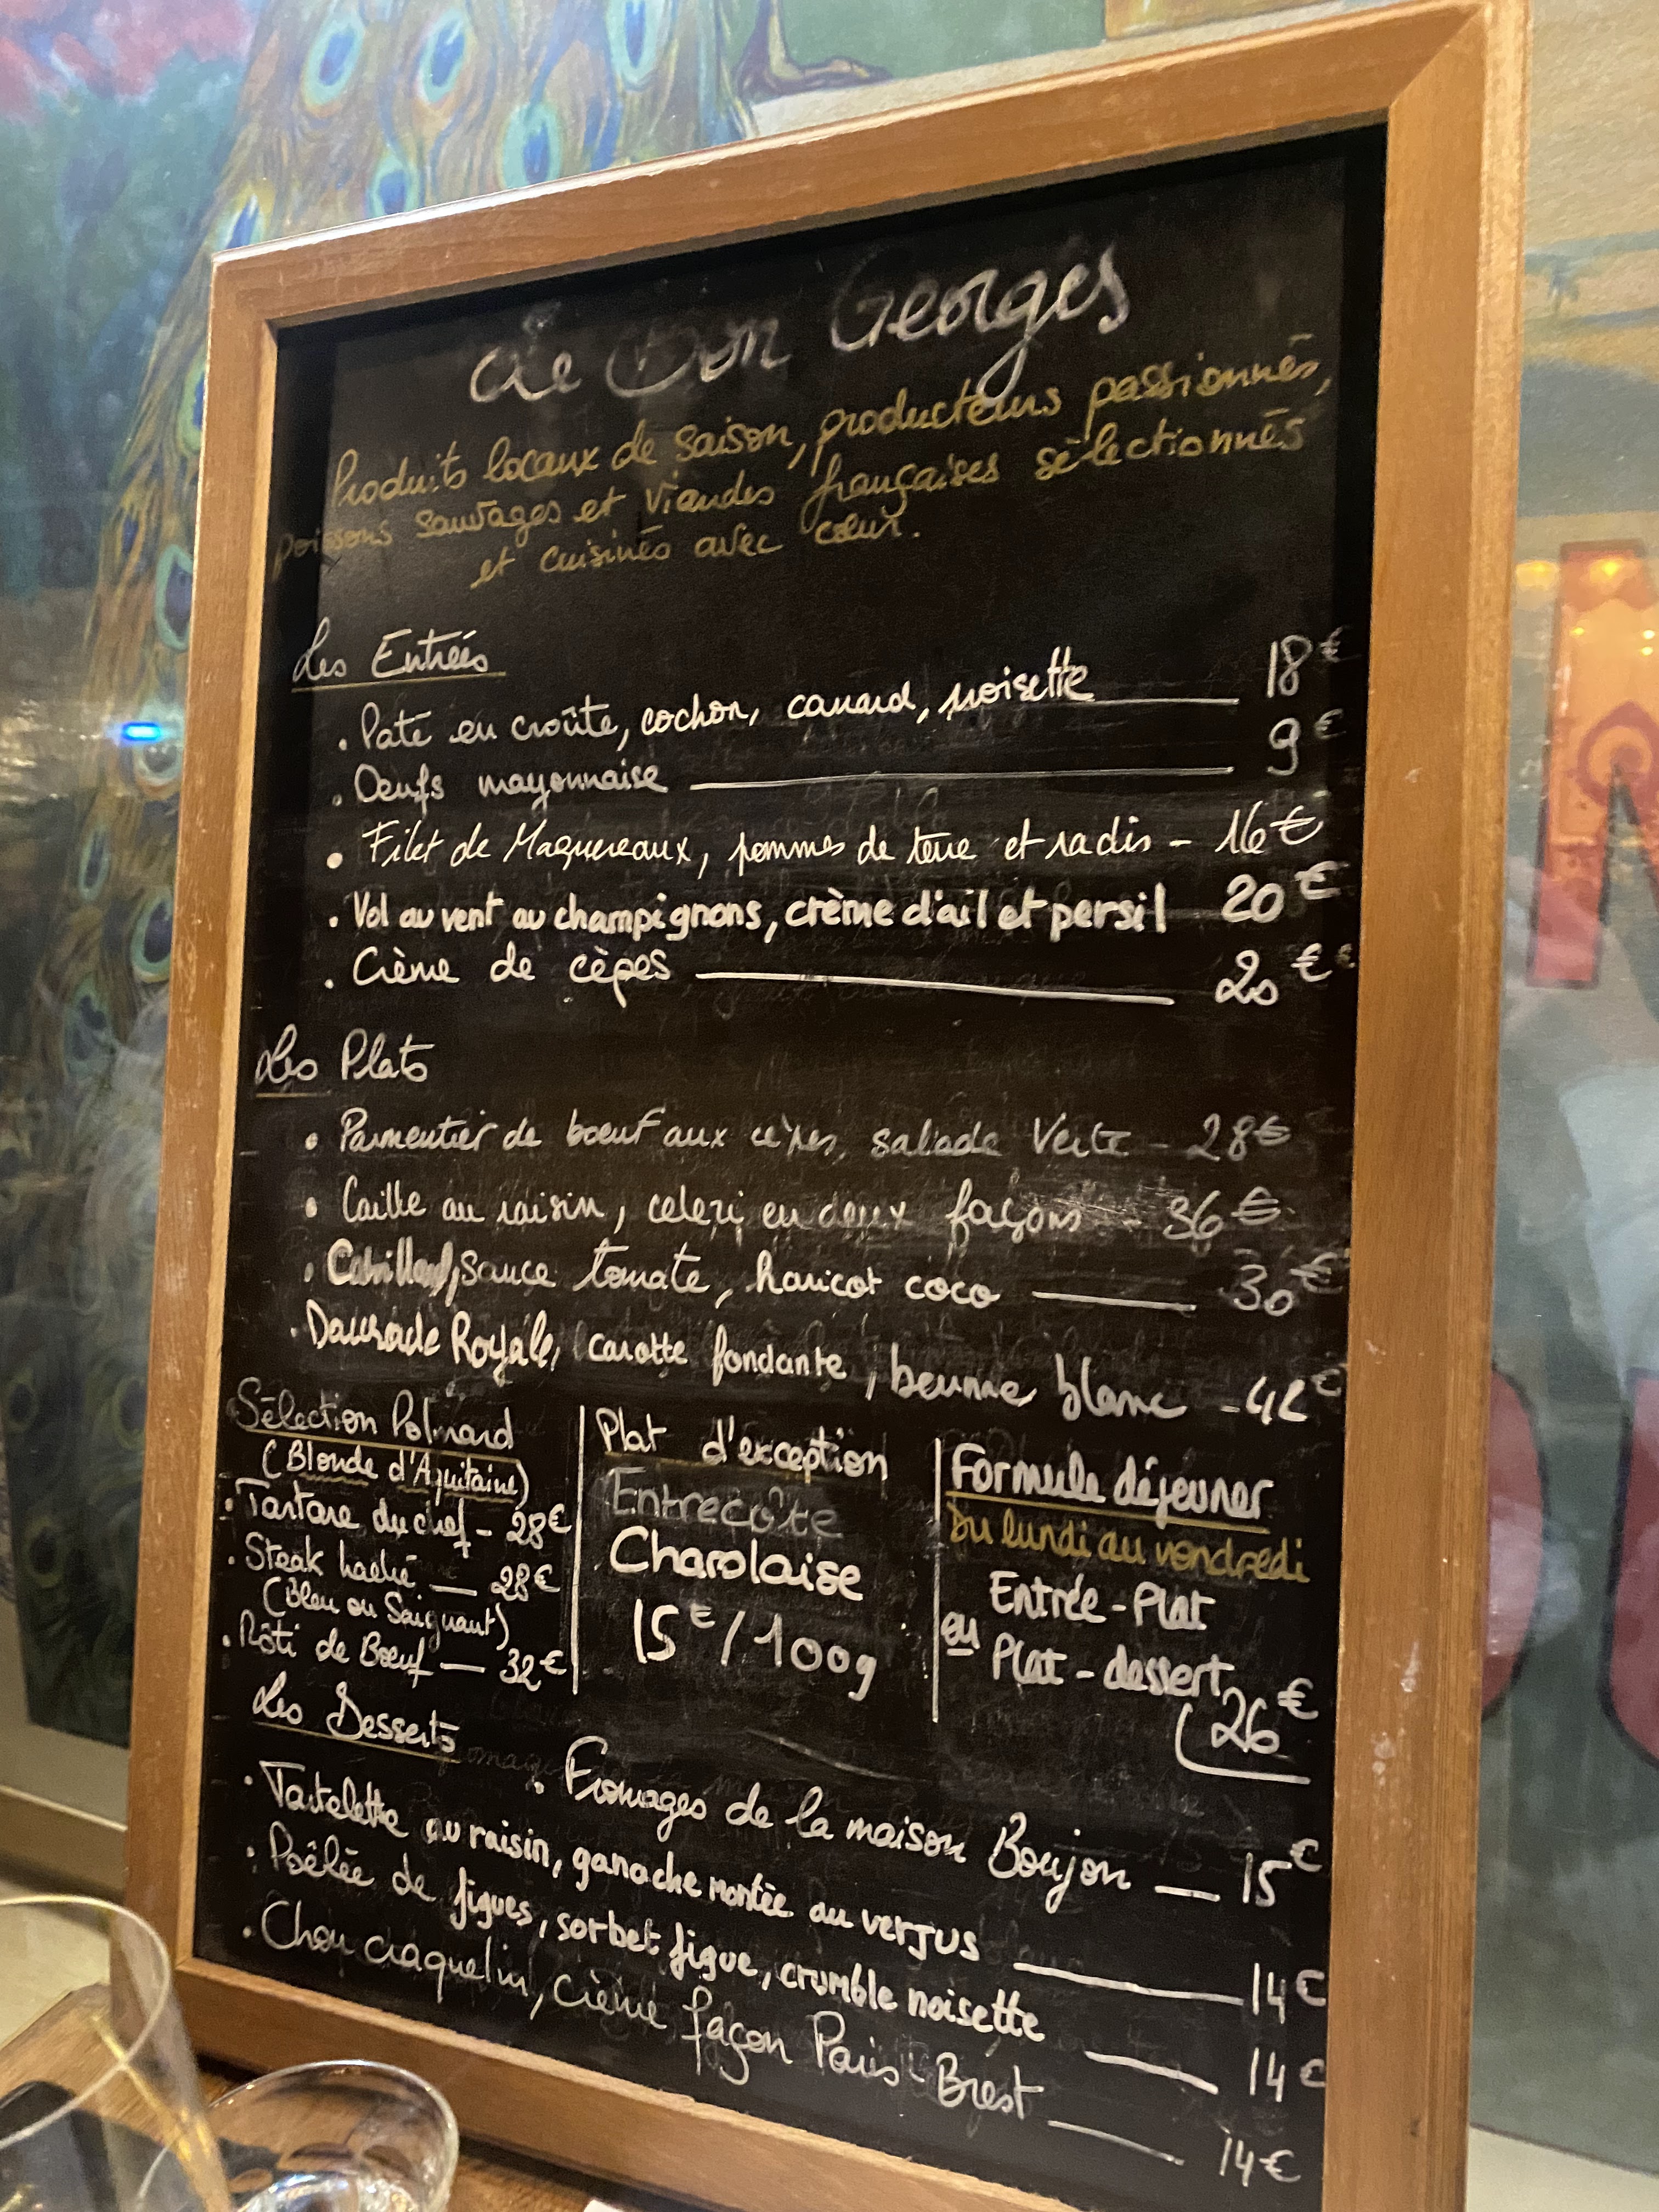 Le Bon Georges
Produits locaux de saison, producteurs passionnés,
poissons sauvages et viandes françaises sélectionnés
et cuisinés avec cœur.
Les Entrées
. Paté en croûte, cochon, canard, noisette 18€
. Oeufs mayonnaise 9€
. Filet de Maquereaux, pommes de terre et radis - 16€
. Vol au vent au champignons, crème d'ail et persil 20€
. Crème de cèpes 20€
Les Plats
. Parmentier de bœuf aux cèpes, salade verte - 28€
. Caille au raisin, celeri en deux façons - 36€
. Cabillaud, sauce tomate, haricot coco 30€
. Daurade Royale, carotte fondante, beurre blanc - 42€
Sélection Polmard
(Blonde d'Aquitaine)
. Tartare du chef - 28€
. Steak haché — 28€
(Bleu ou Saignant)
. Rôti de Bœuf — 32€
Plat d'exception
Entrecôte
Charolaise
15€/100g
Formule déjeuner
Du lundi au vendredi
Entrée - Plat
ou
Plat - dessert
26€
Les Desserts
. Fromages de la maison Boujon — 15€
. Tartelette au raisin, ganache montée au verjus — 14€
. Poêlée de figues, sorbet figue, crumble noisette — 14€
. Chou craquelin, crème façon Paris-Brest — 14€